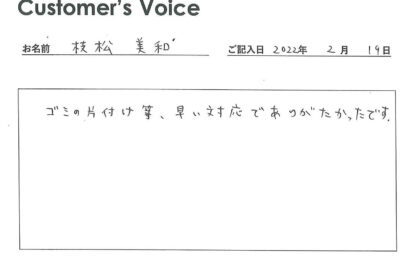 Customer's Voice
お名前 枝松 美和 ご記入日 2022年 2月 19日
ゴミの片付け等、早い対応でありがたかったです.